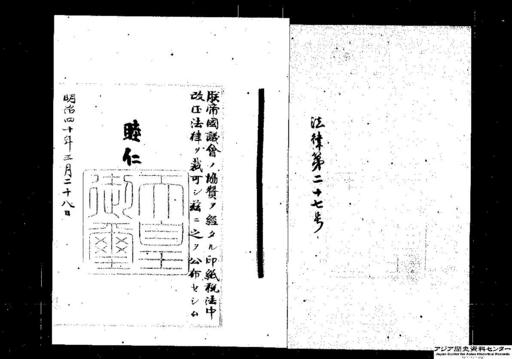 法律第二十七号
朕帝國議會ノ協賛ヲ經タル印紙税法中
改正法律ヲ裁可シ茲ニ之ヲ公布セシム
睦仁
天皇
御璽
明治四十年三月二十八日
アジア歴史資料センター
Japan Center for Asian Historical Records